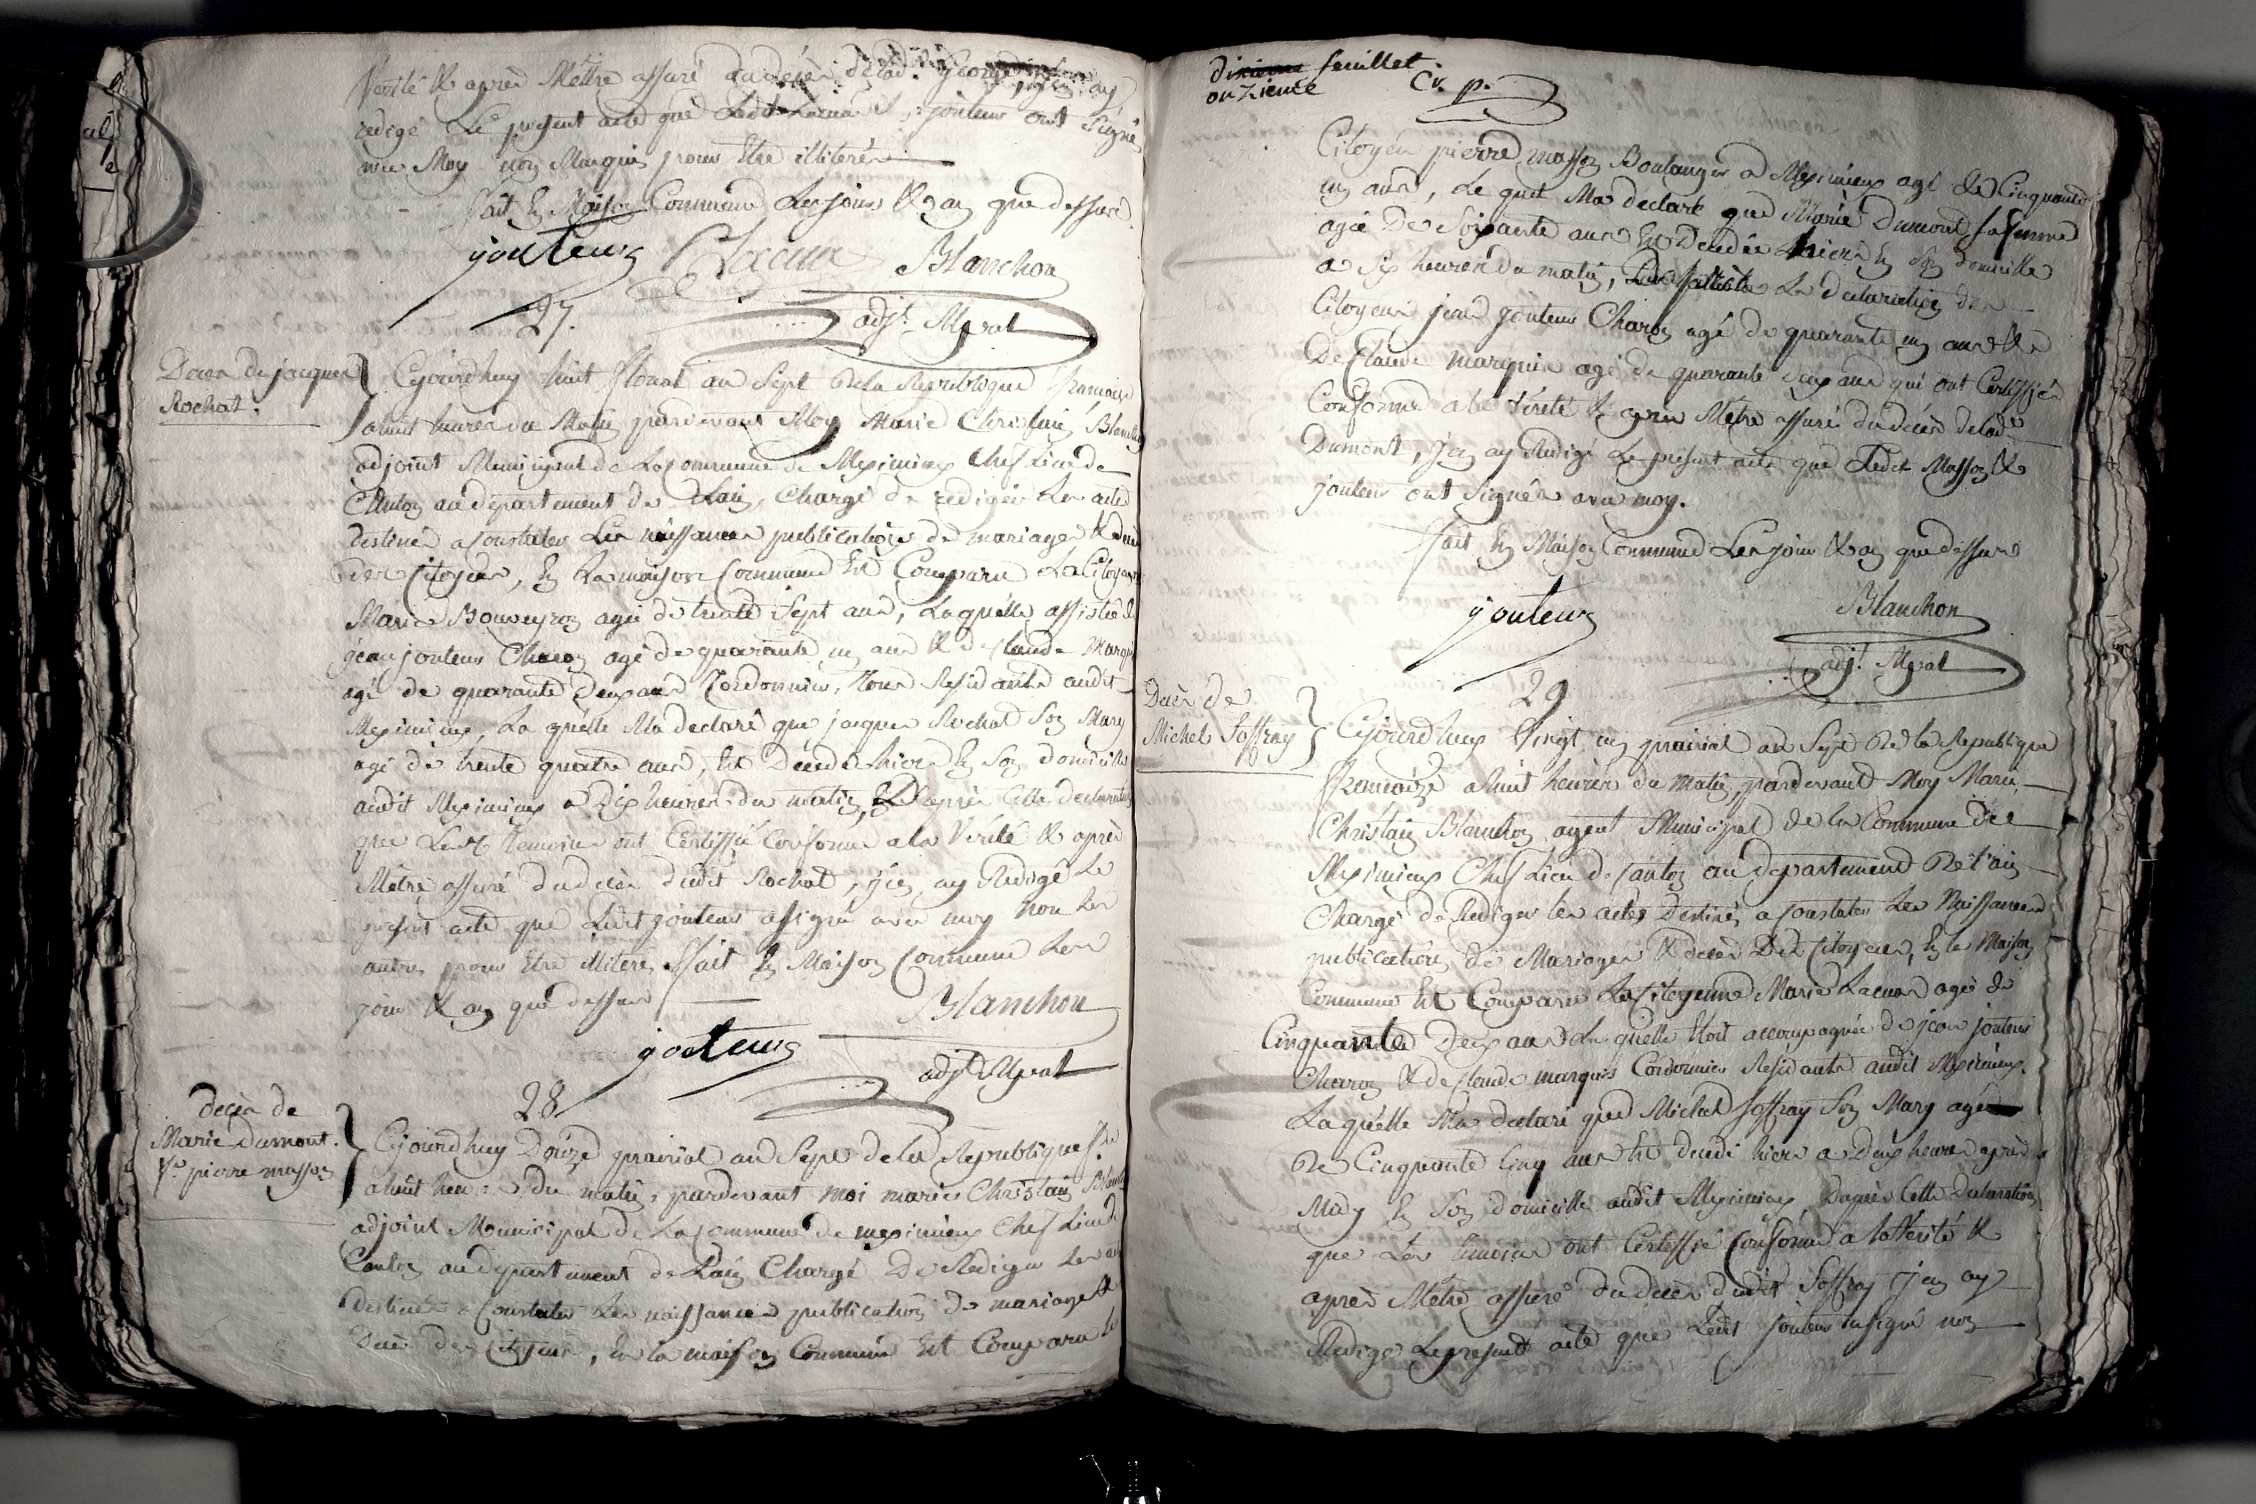 Verité & après Mêttre assuré du décès de lad.
redigé Le present acte que Ledit Lacua & jouteur ont Signé
avec Moy non Marquis pour Etre illiterés
fait En Maison Commune Les jour & an que dessus
jouteur Lacua Blanchon
adjt. Mpal
27.
Deces de jacques
Rochat.
Cejourdhuy huit floreal an Sept De la Republique francaise
a huit heures du Matin pardevant Moy Marie Christain Blanchon
adjoint Municipal de La commune de Meximieux Chef Lieu de
Canton au departement de Lain, Chargé de redigér Les actes
destinés a Constater Les naissances publications de mariages & deces
des Citoyens, En La maison Commune Est Comparu La Citoyenne
Marie Bouveyron agée de trente Sept ans, Laquélle assistée de
jean jouteur Charon agé de quarante un ans & de Claude Marquis
agé de quarante deux ans Cordonnier, Tous Residants audit
Meximieux, La quélle Ma declaré que jacques Rochat Son Mary
agé de trente quatre ans, Est Décédé hiers En Son domicille
audit Meximieux a Dix heures du matin, D'après Cette declaration
que Les temoins ont Certiffié Conforme a la Verité & après
Mêtre assuré du deces dudit Rochat, j'en ay Redigé Le
present acte que Ledit jouteur a signé avec moy non Les
autres pour Etre illiterés. fait En Maison Commune Les
jour & an que dessus
Blanchon
jouteur
adjt. Mpal
28
decès de
Marie dumont.
fe. pierre masson
Cejourdhuy Douze prairial an Sept de la Republique fse
a huit heures du matin, pardevant moi marie Christain Blanchon
adjoint Municipal de La commune de meximieux Chef Lieu de
Canton au departement de Lain Chargé De Rediger Les actes
destinés a Constater Les naissances publications de mariage &
Deces des Citoyens, En la maison Commune Est Comparu le
dixieme feuillet.
onzieme
Cr. p.
Citoyen pierre masson Boulanger a Meximieux agé de Cinquante
un ans, Le quel Ma declaré que Marie Dumont sa femme
agée De Soixante ans Est Décédée hiers En Son domicille
a Six heures du matin, La declaration des
Citoyens jean jouteur Charon agé de quarante un ans &
De Claude marquis agé de quarante deux ans qui ont Certiffiés
Conforme a la Vérité & après Mêtre assuré du décès de lade.
Dumont, j'en ay Redigé Le présent acte que Ledit Masson &
jouteur ont Signés avec moy.
fait En Maison Commune Les jour & an que dessus
jouteur Blanchon
adjt. Mpal
29
Decès de
Michel Soffray
Cejourdhuy Vingt un prairial an Sept De la Republique
francaize a huit heures du Matin, pardevant Moy Marie
Christain Blanchon agent Municipal de la Commune de
Meximieux Chef Lieu de Canton au departement De l'ain
Chargé de Rediger les actes Destinés a Constater Les Naissances
publications de Mariages & deces Des Citoyens, En la Maison
Commune Est Comparu La Citoyenne Marie Lacua agée de
Cinquante Deux ans La quélle Etoit accompagnée de jean jouteur
Charon & de Claude marquis Cordonnier Residants audit Meximieux.
Laquélle Ma declaré que Michel Soffray Son Mary agé
De Cinquante Cinq ans Est decedé hiers a deux heures après
Midy En Son domicille audit Meximieux D'après Cette Declaration
que Les temoins ont Certiffié Conforme a la Vérité &
après Mêtre assuré du deces dudit Soffray j'en ay
Redigé Le present acte que Ledit jouteur a signé non